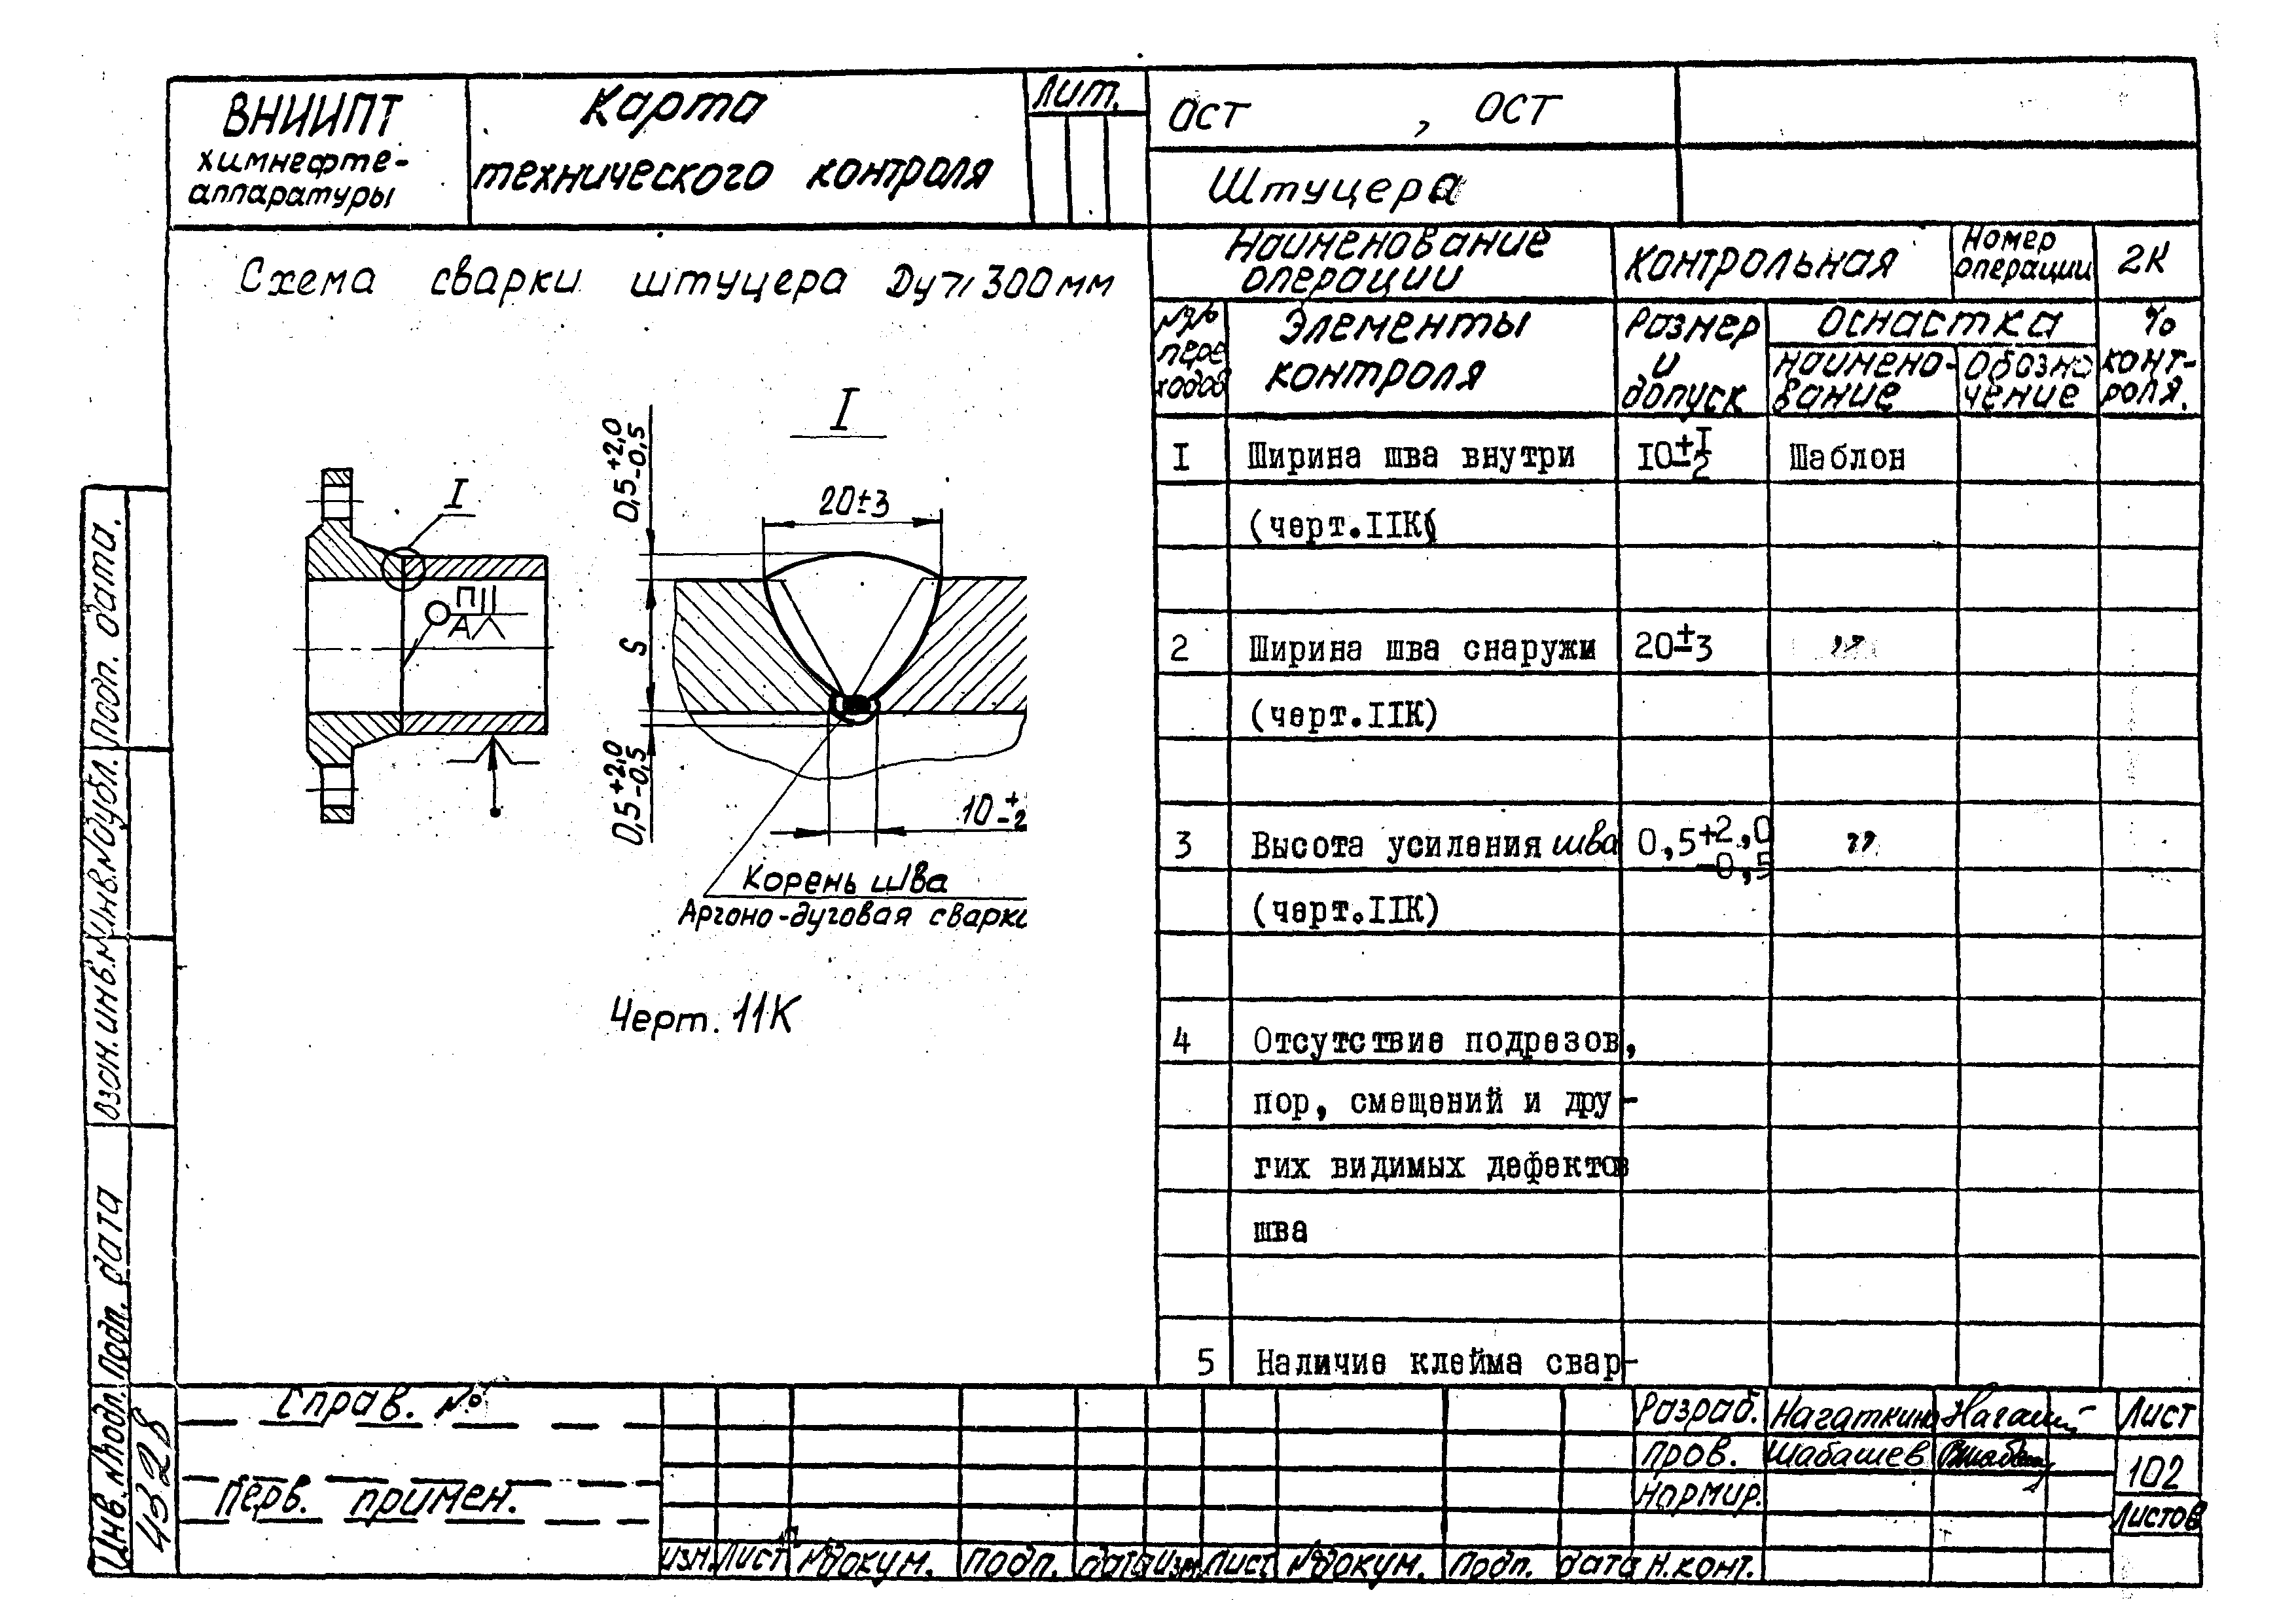 ВНИИПТ
химнефте-
аппаратуры
Карта
технического контроля
Лит.
ОСТ , ОСТ
Штуцера
Схема сварки штуцера Ду ⩾ 300 мм
Наименование
операции
Контрольная
Номер
операции
2К
№№
пере
ходов
Элементы
контроля
Размер
и
допуск
Оснастка
наимено-
вание
обозна
чение
%
конт-
роля.
I
I
0,5 +2,0 -0,5
20±3
S
П
А
0,5 +2,0 -0,5
10 + -2
Корень шва
Аргоно-дуговая сварка
Черт. 11К
I Ширина шва внутри 10 +I -2 Шаблон
(черт.IIК)
2 Ширина шва снаружи 20±3 ,,
(черт.IIК)
3 Высота усиления шва 0,5 +2,0 -0,5 ,,
(черт.IIК)
4 Отсутствие подрезов,
пор, смещений и дру-
гих видимых дефектов
шва
5 Наличие клейма свар-
Подп. дата.
Инв.№дубл.
Взам.инв.№
Подп. дата
Инв.№подл.
4328
Справ. №
Перв. примен.
Изм. Лист № докум. Подп. дата Изм Лист № докум. Подп. дата Н.конт.
Разраб. Нагаткина
Пров. Шабашев
Нормир.
Лист
102
Листов